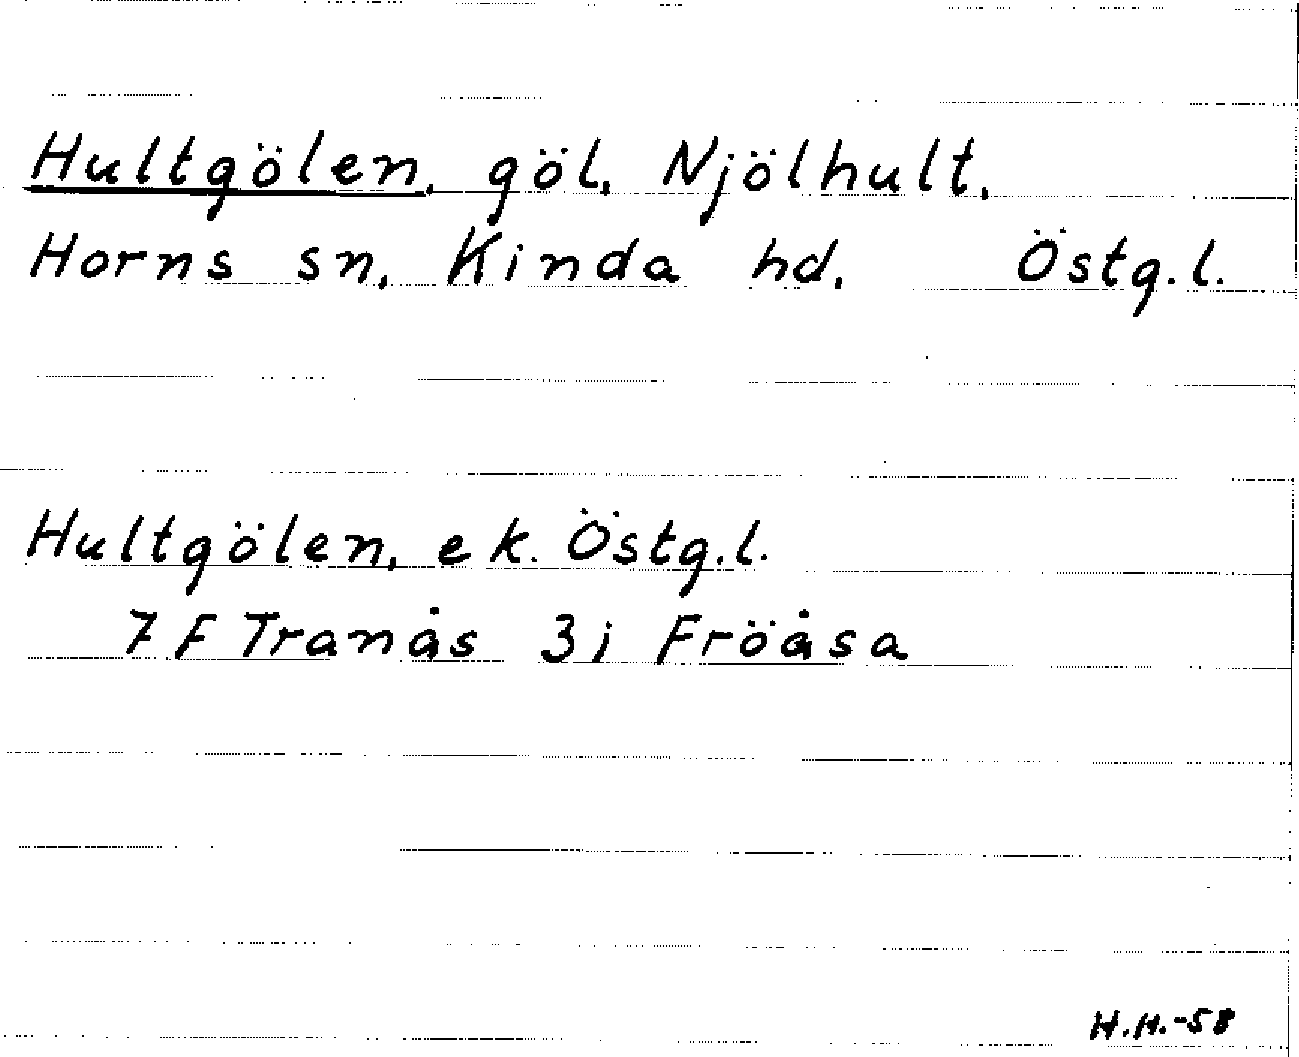 Hultgölen, göl, Njölhult,
Horns sn, Kinda hd, Östg.l.
Hultgölen, ek. Östg.l.
7 F Tranås 3j Fröåsa
H.H.-58